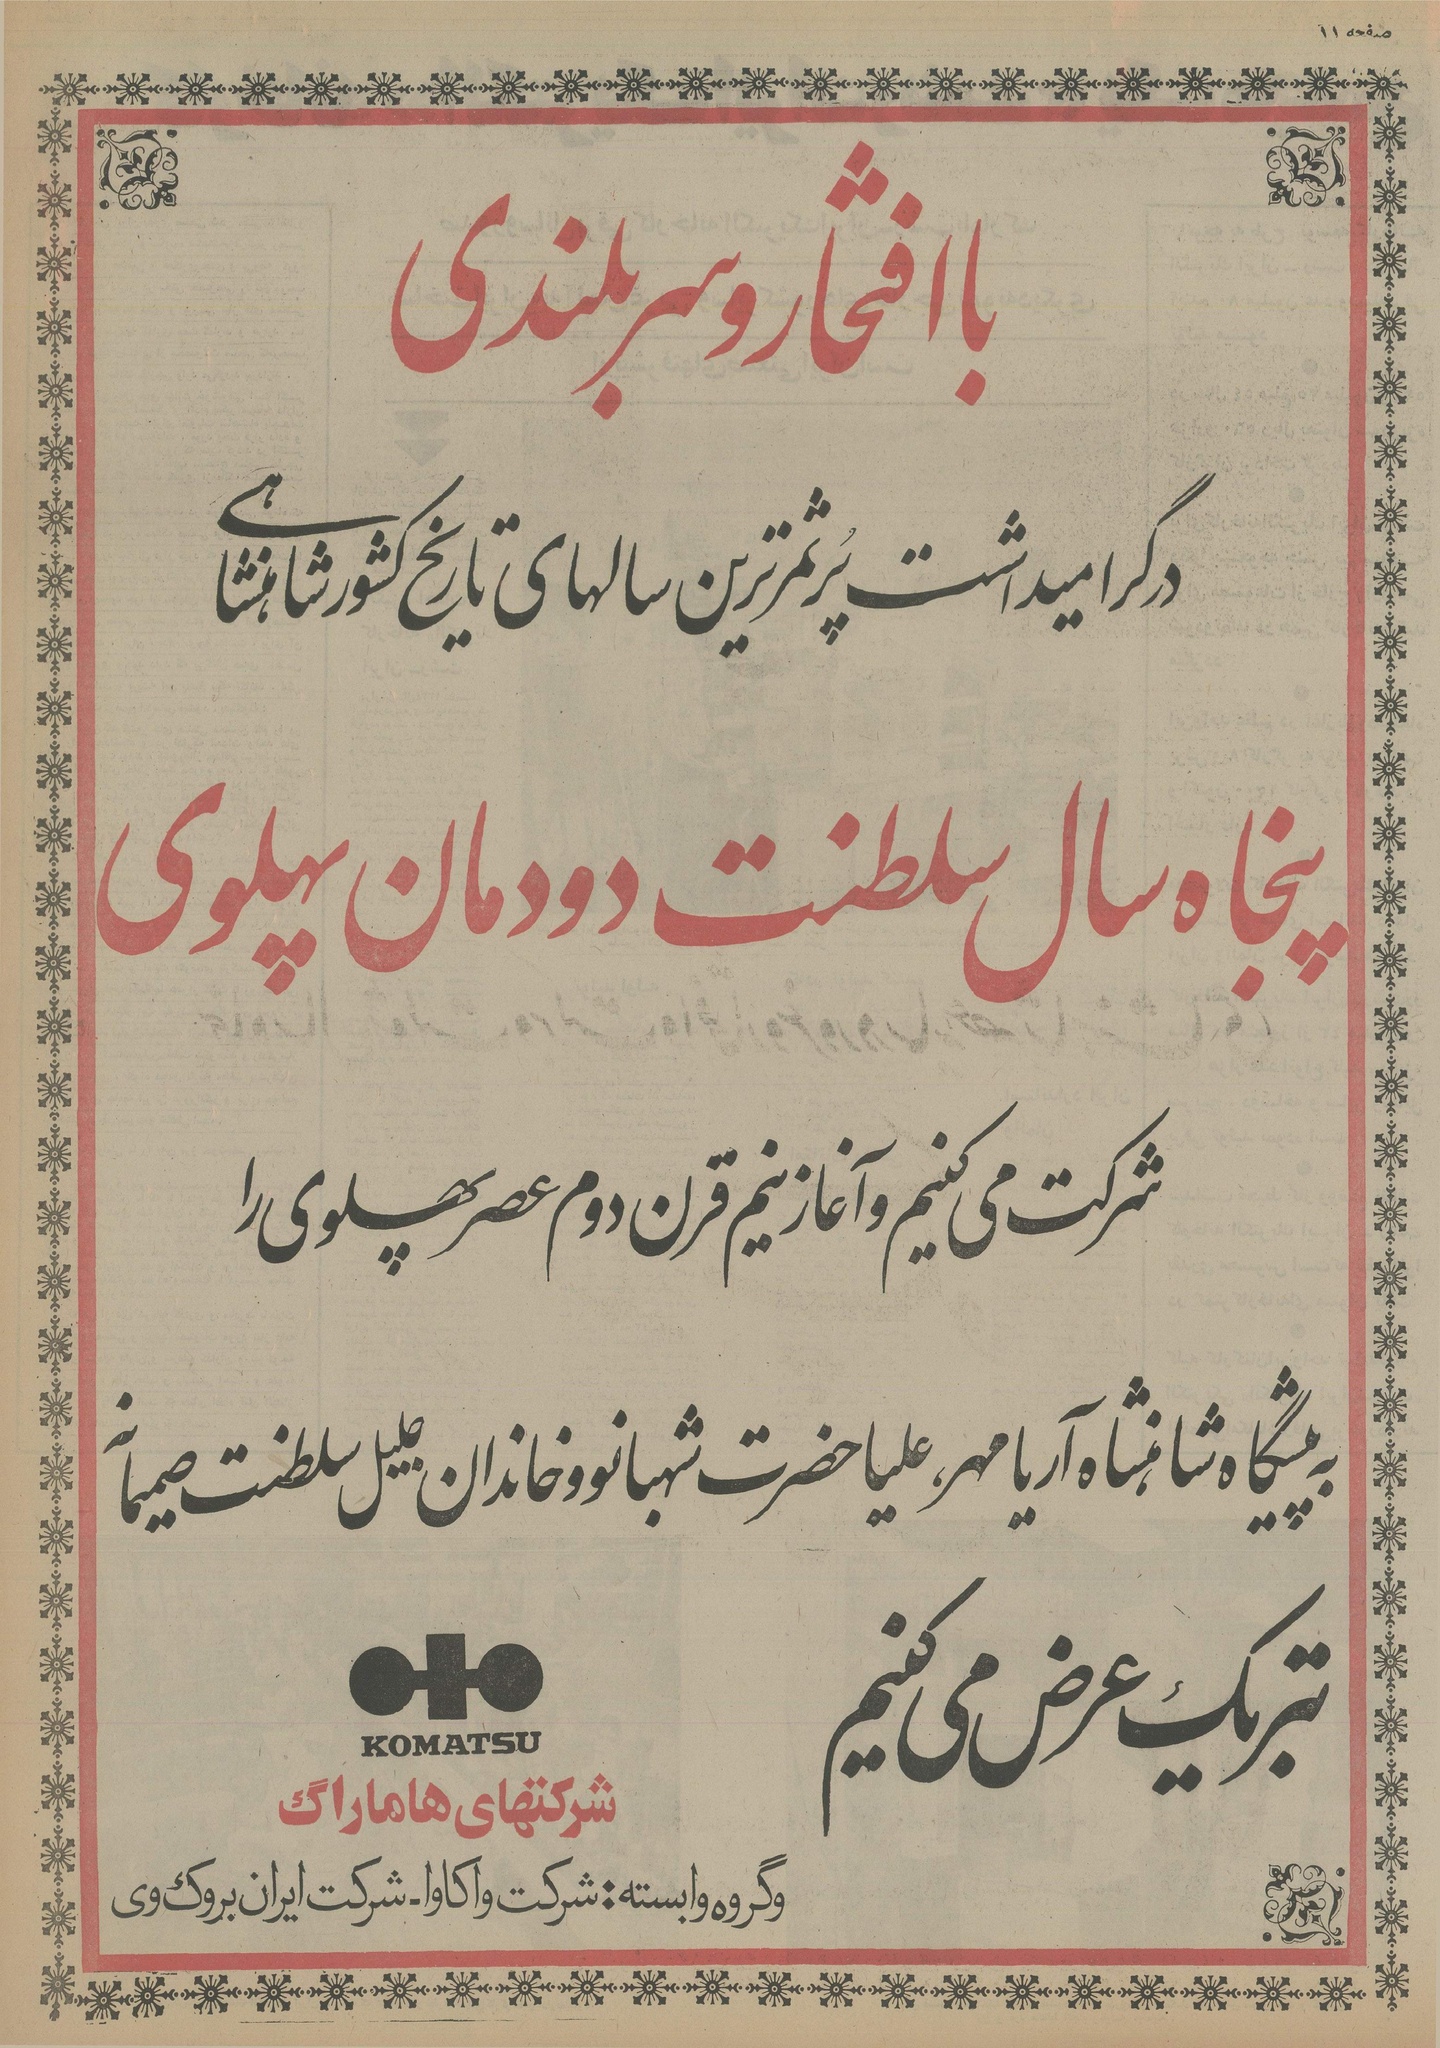 صفحه ۱۱
با افتخار و سربلندی
در گرامیداشت پُرثمرترین سالهای تاریخ کشور شاهنشاهی
پنجاه سال سلطنت دودمان پهلوی
شرکت می کنیم و آغاز نیم قرن دوم عصر پهلوی را
به پیشگاه شاهنشاه آریامهر، علیاحضرت شهبانو و خاندان جلیل سلطنت صمیمانه
تبریک عرض می کنیم
KOMATSU
شرکتهای هاماراگ
و گروه وابسته: شرکت واکاوا - شرکت ایران بروک وی